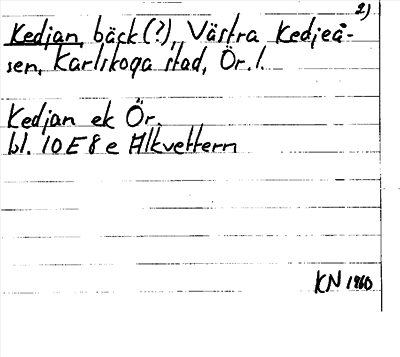 2)
Kedjan, bäck(?), Västra Kedjeå-
sen, Karlskoga stad, Ör. l.
Kedjan ek Ör.
bl. 10 E 8 e Alkvettern
KN 1960